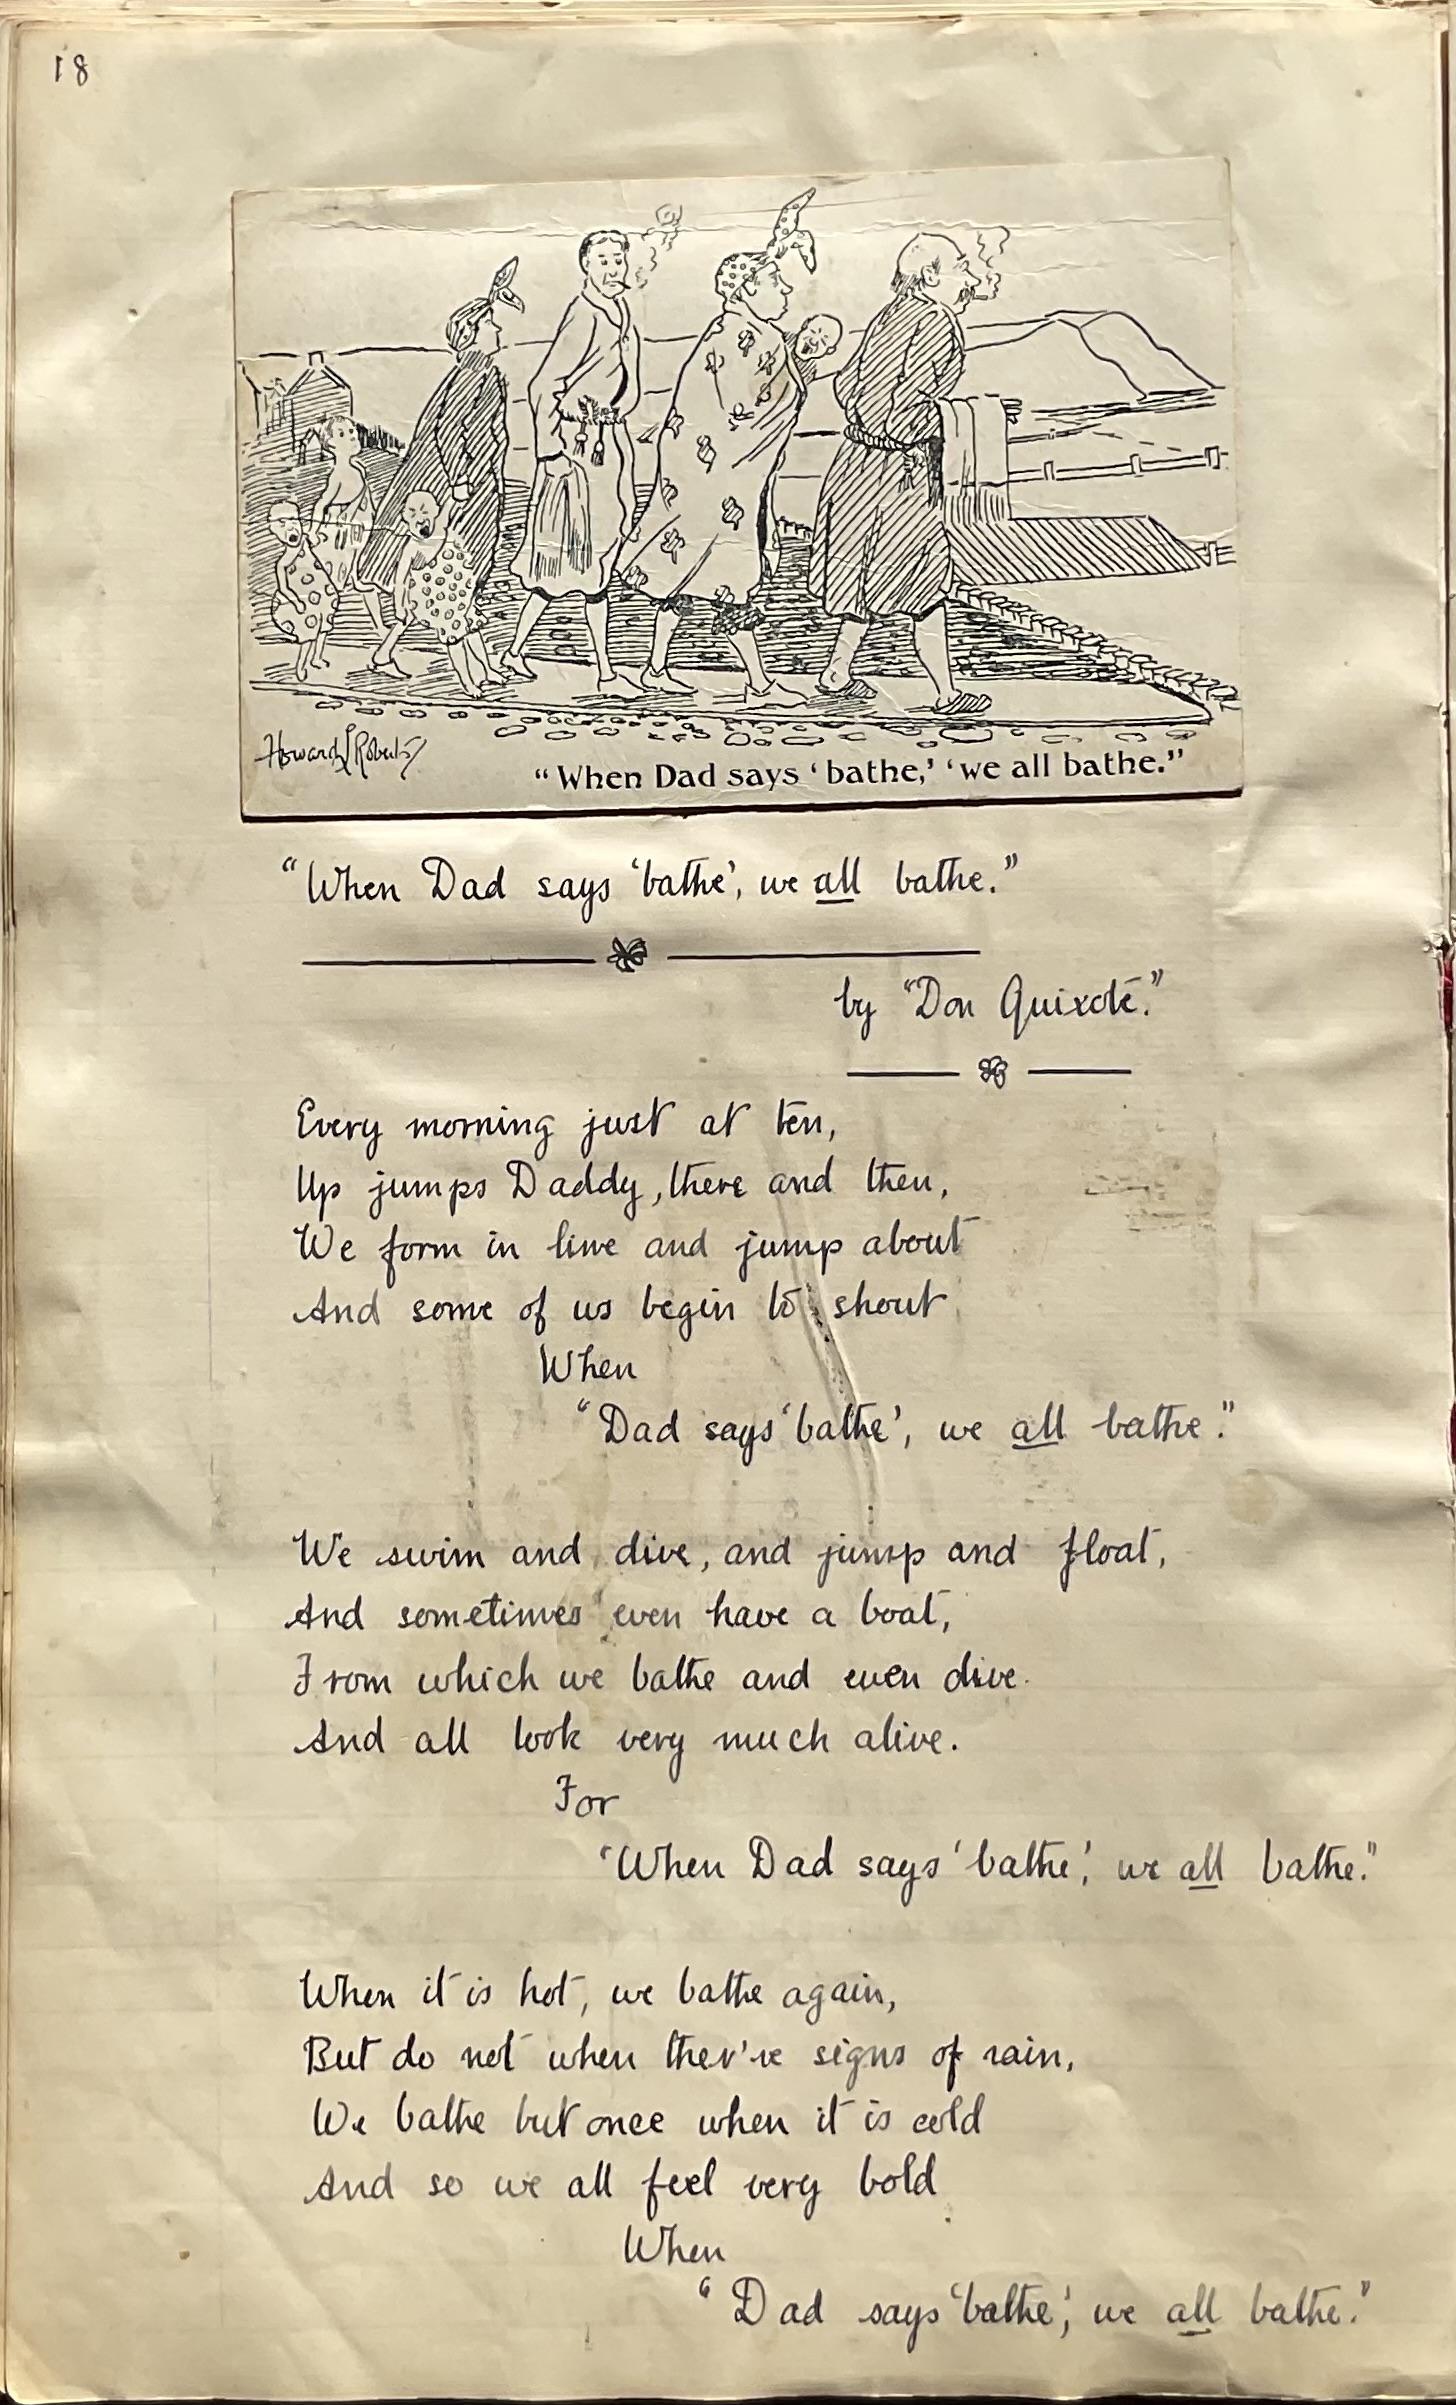 18
Howard L Roberts
"When Dad says 'bathe,' 'we all bathe."
"When Dad says 'bathe', we all bathe."
by "Don Quixote."
Every morning just at ten,
Up jumps Daddy, there and then,
We form in line and jump about
And some of us begin to shout
When
"Dad says 'bathe', we all bathe."
We swim and dive, and jump and float,
And sometimes even have a boat,
From which we bathe and even dive.
And all look very much alive.
For
"When Dad says 'bathe', we all bathe."
When it is hot, we bathe again,
But do not when ther're signs of rain,
We bathe but once when it is cold
And so we all feel very bold
When
"Dad says 'bathe', we all bathe."